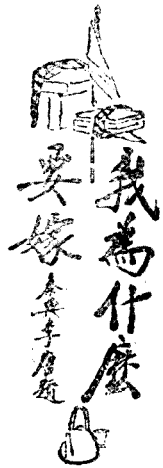 我為什麽
要嫁